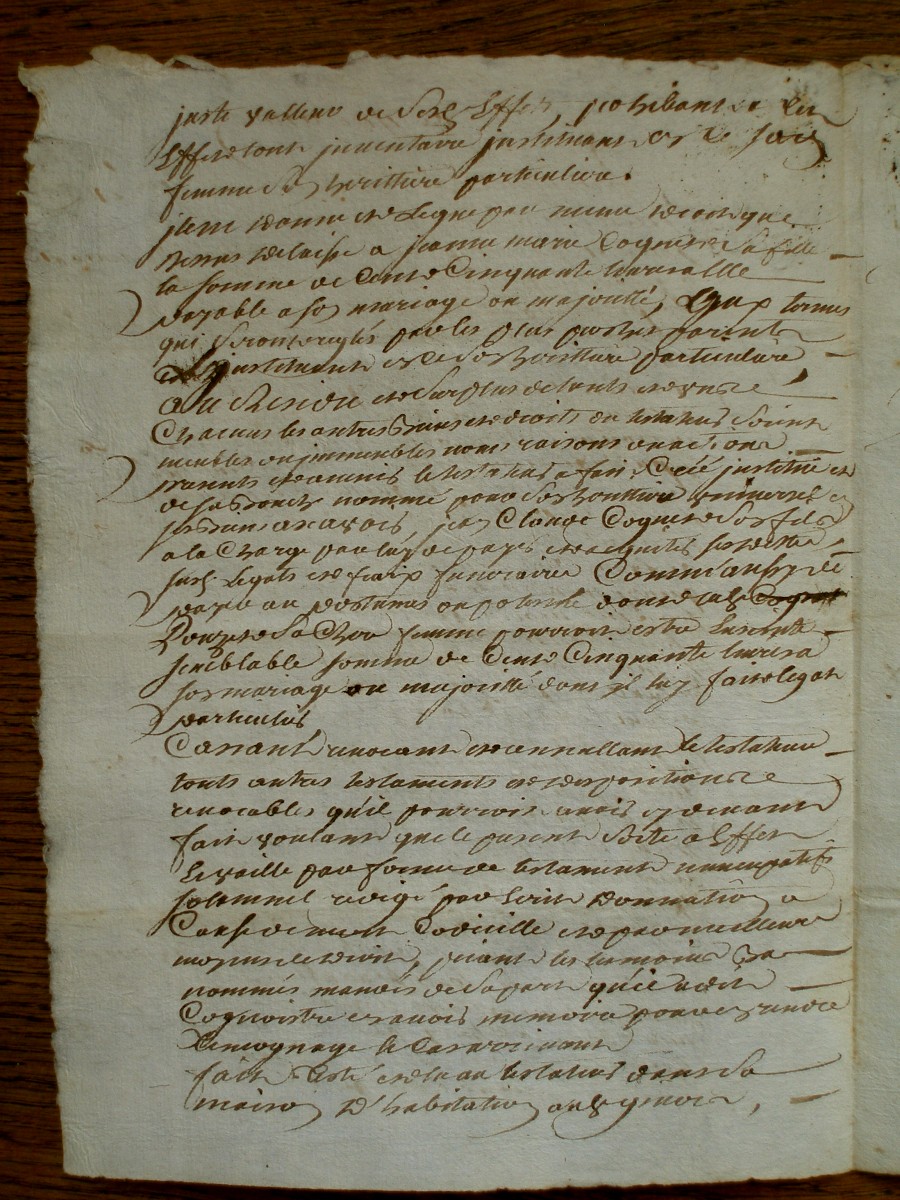 juste valleur de ses effets, prohibant a cet
effet tout inventaire instituant en ce sad
femme son heritiere particuliere.
item donne et legue par meme droit que
dessus delaisse a jeanne marie Coquet sa fille
la somme de Cent Cinquante livres
payable a son mariage ou majorité, aux termes
qui seront reglés par les plus proches parents
instituant en ce son heritiere particuliere
au Residu et surplus de touts et un
chacuns les autres biens et droits du testateur soient
meubles ou immeubles noms raisons ou actions
presents et advenir le testateur a fait Créé institué et
de sa bouche nommé pour son heritier universel
jean Claude Coquet son fils
a la Charge par luy de payer et acquiter ses dettes
legats et fraix funeraires Comm'aussy de
payer au postume ou postume dont lad
de sa Chere femme pourroit estre Enceinte
semblable somme de Cent Cinquante livres a
son mariage ou majorité dont il luy fait legat
particulier
Cassant revocant et annullant le testateur
touts autres testaments et dispositions
revocables qu'il pourroit avoir cy devant
fait voulant que le present sorte a Effet
et vaille par forme de testament nuncupatif
solemnel redigé par Ecrit donnation a
Cause de mort Codicille et par meilleur
moyen de droit, priant les temoins
nommés mandés de sa part qu'il a dit
Cognoistre et avoir memoire pour en rendre
temoignage le Cas avenant
fait leu et au testateur dans sa
maison d'habitation